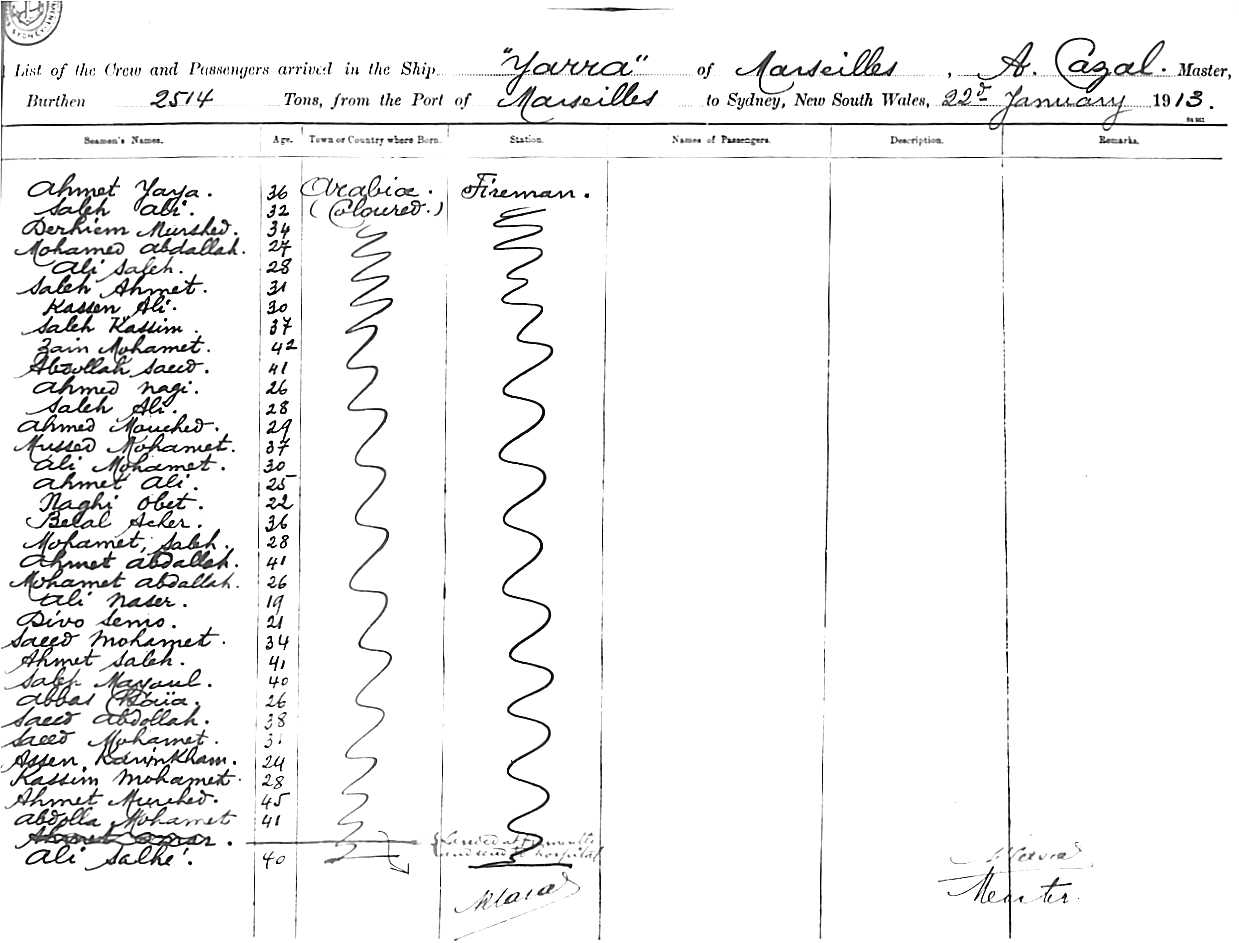 List of the Crew and Passengers arrived in the Ship "Yarra" of Marseilles, A. Cazal. Master,
Burthen 2514 Tons, from the Port of Marseilles to Sydney, New South Wales, 22d January 1913.
Seamen's Names. Age. Town or Country where Born. Station. Names of Passengers. Description. Remarks.
Ahmet Yaya. 36 Arabia. Fireman.
Saleh Abi. 32 (Coloured.)
Derhiem Murshed. 34
Mohamed Abdallah. 27
Ali Saleh. 28
Saleh Ahmet. 31
Kassen Ali. 30
Saleh Kassim. 37
Zain Mohamet. 42
Abdollah Saeed. 41
Ahmed Nagi. 26
Saleh Ali. 28
Ahmed Mouched. 29
Mussed Mohamet. 37
Ali Mohamet. 30
Ahmet Ali. 25
Naghi Obet. 22
Belal Acker. 36
Mohamet, Saleh. 28
Ahmet Abdallah. 41
Mohamet Abdallah. 26
Ali Naser. 19
Divo Semo. 21
Saeed Mohamet. 34
Ahmet Saleh. 41
Saleh Mayoul. 40
Abbas 26
Saeed Abdollah. 38
Saeed Mohamet. 31
Assen. Karimkham. 24
Kassim Mohamet. 28
Ahmet Murched. 45
Abdolla Mohamet 41
Ahmet Omar. Landed at Fremantle
and sent to hospital
Ali Salhé. 40
Master.